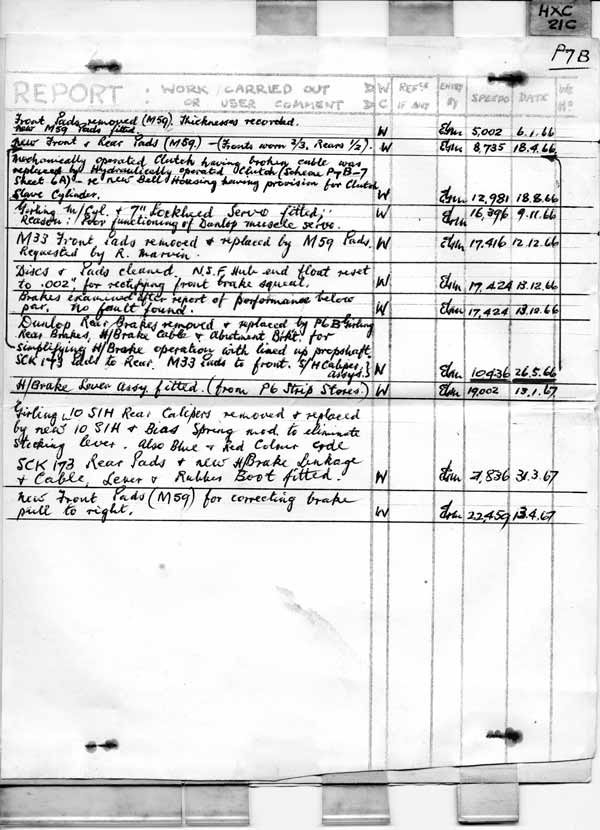 HXC
21C
P7B
REPORT : WORK CARRIED OUT D W REF'CE ENTRY SPEEDO DATE
OR USER COMMENT D C IF ANY BY
Front Pads removed (M59). Thicknesses recorded.
New M59 Pads fitted. W 5,002 6.1.66
New Front & Rear Pads (M59) - (Fronts worn 2/3, Rears 1/2). W 8,735 18.4.66
Mechanically operated Clutch having broken cable was
replaced by Hydraulically operated Clutch (Scheme P7B-7
Sheet 6A) - re new Bell Housing having provision for Clutch
Slave Cylinder. W 12,981 18.8.66
Girling M/Cyl. & 7" Lockheed Servo fitted;
Reason: Poor functioning of Dunlop muscle servo. W 16,396 9.11.66
M33 Front Pads removed & replaced by M59 Pads.
Requested by R. Marvin. W 17,416 12.12.66
Discs & Pads cleaned. N.S.F. Hub end float reset
to .002" for rectifying front brake squeal. W 17,424 13.12.66
Brakes examined after report of performance below
par. No fault found. W 17,424 13.12.66
Dunlop Rear Brakes removed & replaced by P6B Girling
Rear Brakes, H/Brake Cable & Abutment Brkt. for
simplifying H/Brake operation with lined up propshaft.
SCK 173 Pads to Rear. M33 Pads to front. S/H Caliper
Assys. W 10436 26.5.66
H/Brake Lever Assy. fitted. (from P6 Strip Stores.) W 19,002 13.1.67
Girling 10 SIH Rear Calipers removed & replaced
by new 10 SIH & Bias Spring mod. to eliminate
sticking lever. Also Blue & Red Colour code
SCK 173 Rear Pads & new H/Brake Linkage
& Cable, Lever & Rubber Boot fitted. W 21,836 31.3.67
New Front Pads (M59) for correcting brake
pull to right. W 22,459 13.4.67